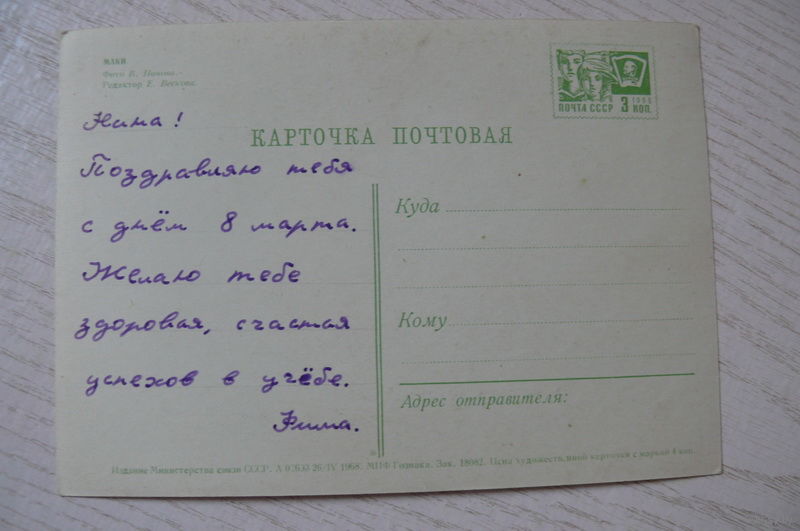 МАКИ
Фото В. Попова.
Редактор Е. Вескова.
ПОЧТА СССР 1966 3 КОП.
КАРТОЧКА ПОЧТОВАЯ
Нина!
Поздравляю тебя
с днём 8 марта.
Желаю тебе
здоровая, счастия
успехов в учёбе.
Рима.
Куда
Кому
Адрес отправителя:
Издание Министерства связи СССР. 26/IV 1968. МПФ Гознака. Зак. 18082. Цена художественной карточки с маркой 4 коп.